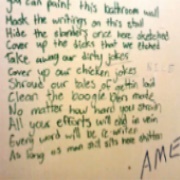 you can paint this bathroom wall
Mask the writings on this stall
Hide the slanders once here sketched
Cover up the dicks that we etched
Take away our dirty jokes
Cover up our chicken jokes
Shroud our tales of gettin bit
Clean the boogie
No matter how hard you strain
All your efforts will end in vein
Every word will be re writen
As long as man still sits here shitten
. AME